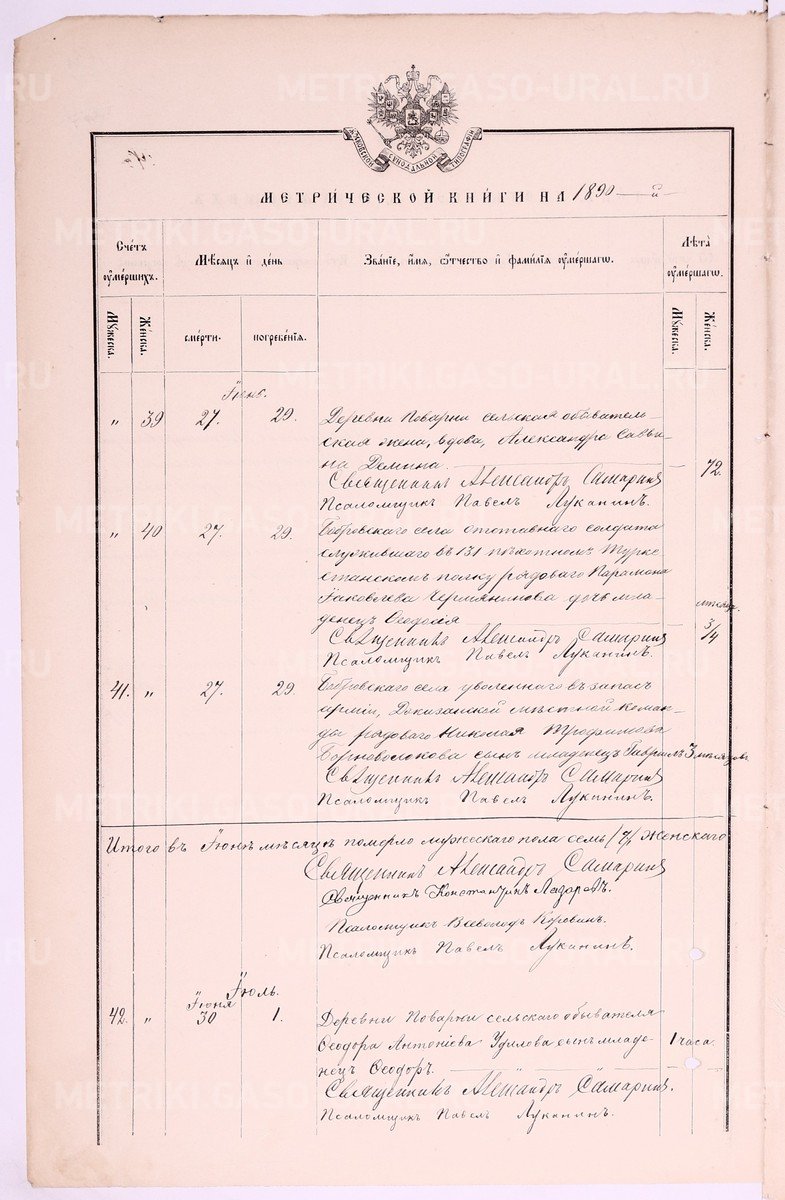 МЕТРИЧЕСКОЙ КНИГИ НА 1890 й
Счетъ умершихъ.
Мѣсяцъ и день
Званіе, имя, отчество и фамилія умершаго.
Лѣта умершаго.
Мужеска.
Женска.
смерти.
погребенія.
Мужеска.
Женска.
Іюнь.
„ 39 27. 29. Деревни Поварни сельская обыватель-
ская жена, вдова, Александра Савви-
на Демина. 72.
Священникъ Александръ Самаринъ
Псаломщикъ Павелъ Луканинъ.
„ 40 27 29. Бобровскаго села отставнаго солдата
служившаго въ 131 пѣхотномъ Турке
станскомъ полку рядоваго Парамона
Іаковлева дочь мла-
денецъ Ѳеодосія 3/4
Священникъ Александръ Самаринъ
Псаломщикъ Павелъ Луканинъ.
41. „ 27 29 Бобровскаго села уволеннаго въ запасъ
арміи, мѣстной коман-
ды рядоваго Николая Трофимова
Борноволокова сынъ младенецъ Гавріилъ 3 мѣсяцовъ
Священникъ Александръ Самаринъ
Псаломщикъ Павелъ Луканинъ.
Итого въ Іюнѣ мѣсяцѣ померло мужескаго пола семь /7/ женскаго
Священникъ Александръ Самаринъ
Священникъ Константинъ Лазаревъ.
Псаломщикъ Всеволодъ Коровинъ.
Псаломщикъ Павелъ Луканинъ.
Іюль.
Іюня
42. „ 30 1. Деревни Поварни сельскаго обывателя
Ѳеодора Антоніева Удилова сынъ младе- 1 часа
нецъ Ѳеодоръ.
Священникъ Александръ Самаринъ.
Псаломщикъ Павелъ Луканинъ.
METRIKI.GASO-URAL.RU